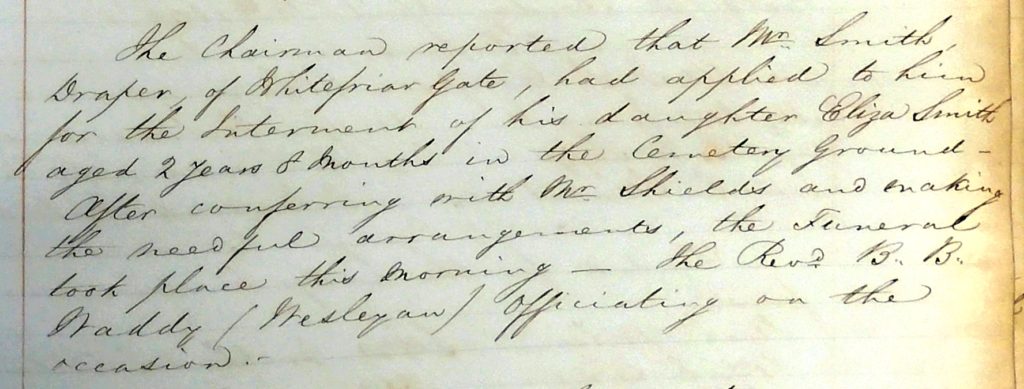 The Chairman reported that Mr. Smith,
Draper, of Whitefriar Gate, had applied to him
for the Interment of his daughter Eliza Smith
aged 2 years 8 Months in the Cemetery Ground –
After conferring with Mr. Shields and making
the needful arrangements, the Funeral
took place this Morning – The Revd. B. B.
Waddy (Wesleyan) Officiating on the
occasion. –